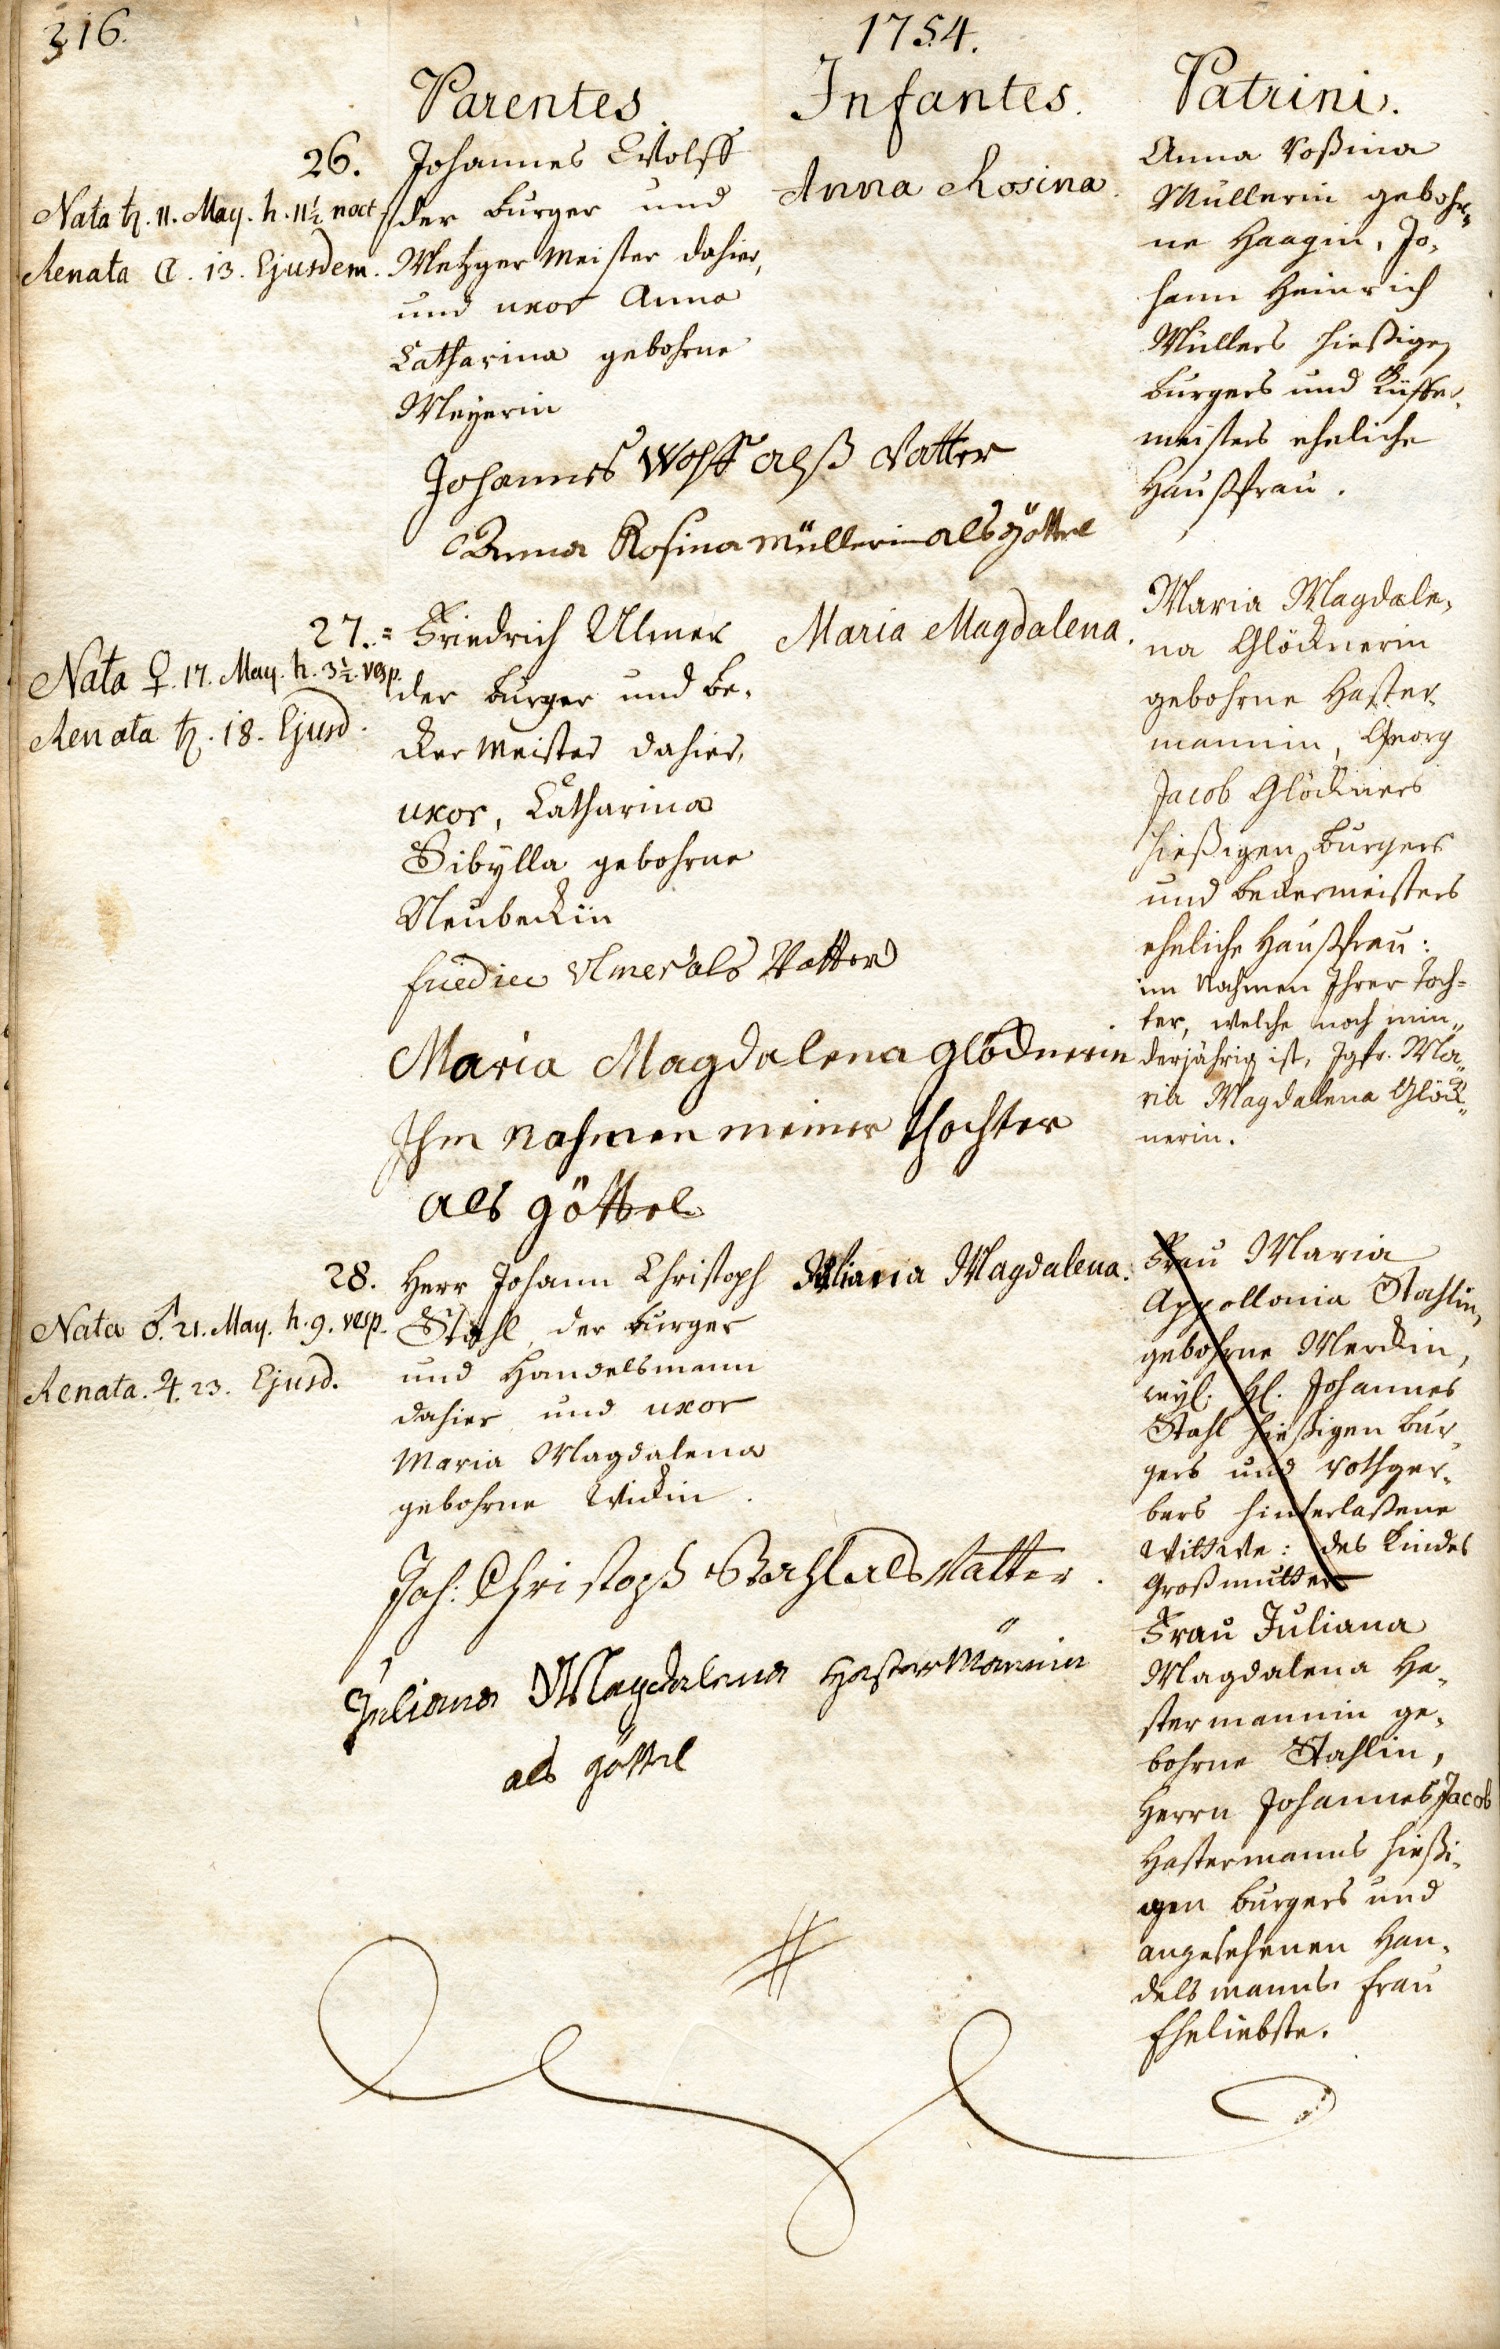 316.
1754.
Parentes.
Infantes.
Patrini.
26.
Nata ♄. 11. May. h. 11½ noct.
Renata ☾. 13. Ejusdem.
Johannes Wolff
der burger und
Metzger Meister dahier,
und uxor Anna
Catharina gebohrne
Meyerin
Anna Rosina.
Anna Roßina
Müllerin gebohr„
ne Haagin, Jo,
hann Heinrich
Müllers hießigen
burgers und Küffer,
meisters eheliche
Haußfrau.
Johannes Wolff alß Vatter
Anna Rosina Müllerin als göttel
27. =
Nata ♀. 17. May. h. 3½. vesp.
Renata ♄. 18. Ejusd.
Friedrich Ulmer
der burger und be,
cker Meister dahier,
uxor, Catharina
Sibylla gebohrne
Neubeckin
Maria Magdalena.
Maria Magdale,
na Glöcknerin
gebohrne Haster,
mannin, Georg
Jacob Glöckners
hießigen burgers
und beckermeisters
eheliche Haußfrau:
im Nahmen Ihrer Toch=
ter, welche noch min„
derjährig ist, Jgfr. Ma„
ria Magdalena Glöck„
nerin.
friedric Ulmer als Vatter
Maria Magdalena glöcknerin
Ihm nahmen meiner thochter
als göttel
28.
Nata ♂. 21. May. h. 9. vesp.
Renata. ♃. 23. Ejusd.
Herr Johann Christoph
Stahl, der burger
und Handelsmann
dahier und uxor
Maria Magdalena
gebohrne Wickin.
Juliana Magdalena.
Frau Maria
Appollonia Stahlin,
gebohrne Merckin,
weyl. H. Johannes
Stahl hießigen bur,
gers und rothger,
bers hinterlaßene
Wittwe: des Kindes
Großmutter
Frau Juliana
Magdalena Ha,
stermannin ge,
bohrne Stahlin,
Herrn Johannes Jacob
Hastermanns hießi,
gen burgers und
angesehenen Han,
delsmanns Frau
Eheliebste.
Joh: Christoph Stahl als Vatter.
Juliana Magdalena Hastermännin
als göttel